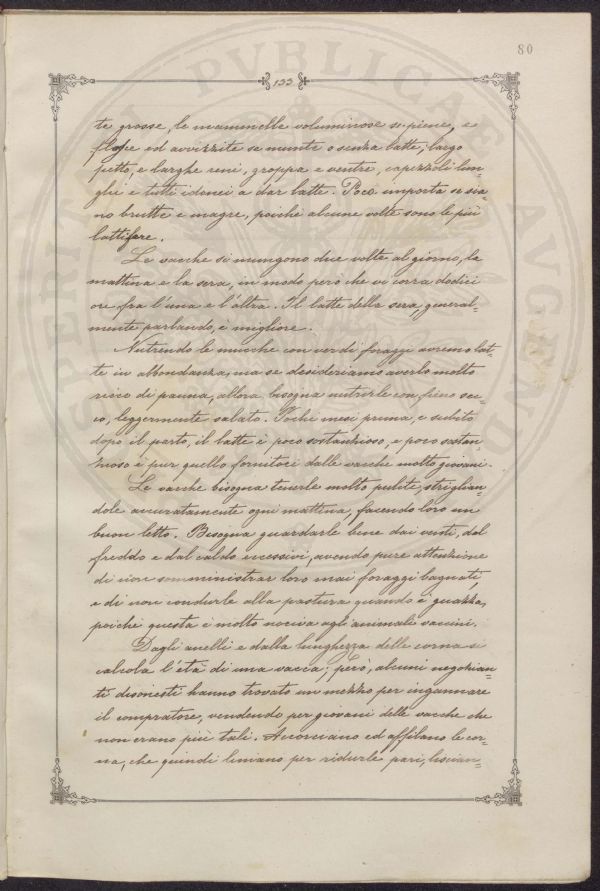 80
155
te grosse, le mammelle voluminose se piene, e
floscie ed avvizzite se munte o senza latte; largo
petto, e larghe reni, groppa e ventre, capezzoli lun-
ghi e tutti idonei a dar latte. Poco importa se sia-
no brutte e magre, poichè alcune volte sono le più
lattifere.
Le vacche si mungono due volte al giorno, la
mattina e la sera, in modo però che vi corra dodici
ore fra l'una e l'altra. Il latte della sera, general-
mente parlando, è migliore.
Nutrendo le mucche con verdi foraggi avremo lat-
te in abbondanza, ma se desideriamo averlo molto
ricco di panna, allora bisogna nutrirle con fieno sec-
co, leggermente salato. Pochi mesi prima, e subito
dopo il parto, il latte è poco sostanzioso, e poco sostan-
zioso è pur quello fornitoci dalle vacche molto giovani.
Le vacche bisogna tenerle molto pulite, striglian-
dole accuratamente ogni mattina, facendo loro un
buon letto. Bisogna guardarle bene dai venti, dal
freddo e dal caldo eccessivi, avendo pure attenzione
di non somministrar loro mai foraggi bagnati,
e di non condurle alla pastura quando è guazza,
poichè questa è molto nociva agli animali vaccini.
Dagli anelli e dalla lunghezza delle corna si
calcola l'età di una vacca; però, alcuni negozian-
ti disonesti hanno trovato un mezzo per ingannare
il compratore, vendendo per giovani delle vacche che
non erano più tali. Accorciano ed affilano le cor-
na, che quindi limano per ridurle pari, liscian-